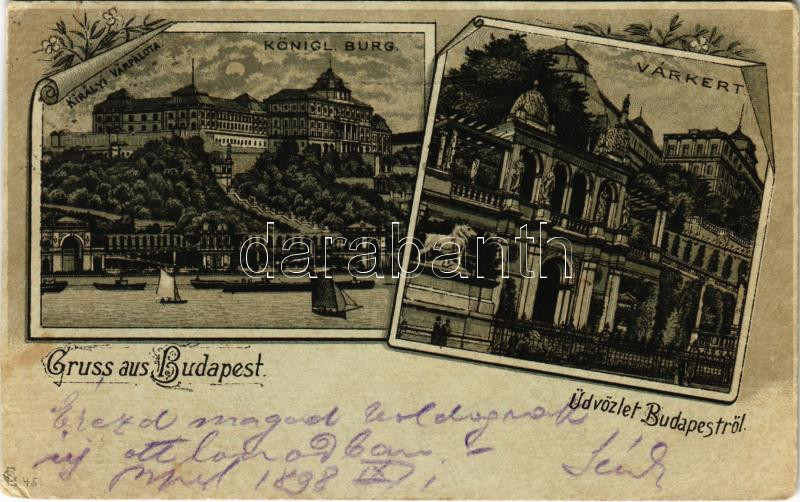 KIRÁLYI VÁRPALOTA
KÖNIGL. BURG.
VÁRKERT
darabanth
Gruss aus Budapest.
Üdvözlet Budapestről.
Érezd magad boldognak
új otthonodban
1898
45